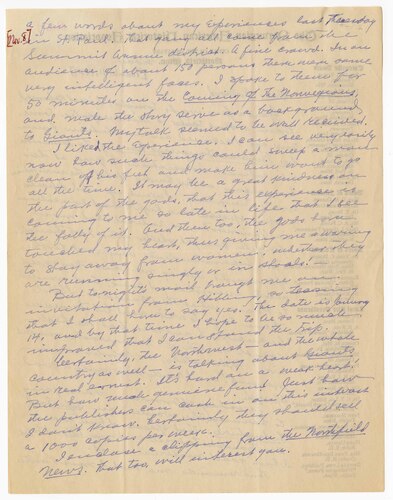 a few words about my experiences last Thursday
[Nov. 8]
in St Paul. They all came from the
Summit Avenue district. A fine crowd. In an
audience of about 150 persons there were some
very intelligent faces. I spoke to them for
50 minutes on the Coming of the Norwegians,
and made the story serve as a background
to Giants. My talk seemed to be well received.
I liked the experience. I can see very easily
now how such things could sweep a man
clean off his feet and make him want to go
all the time. It may be a great kindness on
the part of the gods, that this experience is
coming to me so late in life that I see
the folly of it. And then too, the gods have
touched my heart, thus giving me warning
to stay away from women, whether they
are running singly or in shoals! —
But tonight's mail brought me an
invitation from Hibbing, so teasing
that I shall have to say yes. The date is January
14, and by that time I hope to be so much
improved that I can stand the trip.
Certainly, the Northwest — and the whole
country as well — is talking about Giants
in real earnest. It's hard on a weak heart.
But how much genuine fun! Just how
the publishers can cash in on this interest
I don't know. Certainly they should sell
a 1000 copies per week.
I enclose a clipping from the Northfield
News. That too, will interest you.